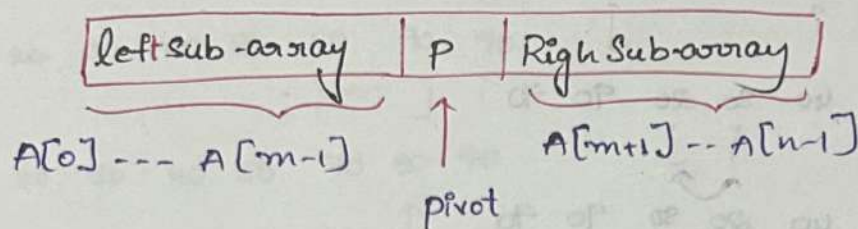 left sub-array P Righ Sub-array
A[0] --- A[m-1] A[m+1] -- A[n-1]
pivot